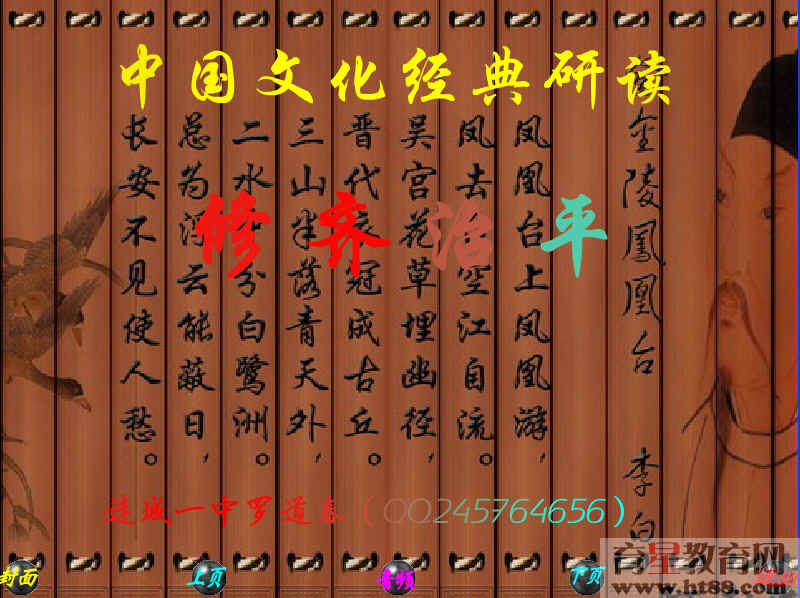 中国文化经典研读
修齐治平
金陵鳳凰台 李白
凤凰台上凤凰游，
凤去 空江自流。
吴宫花草埋幽径，
晋代衣冠成古丘。
三山半落青天外，
二水 分白鹭洲。
总为浮云能蔽日，
长安不见使人愁。
连城一中罗道春（QQ245764656）
封面
上页
音频
下页
育星教育网
www.ht88.com